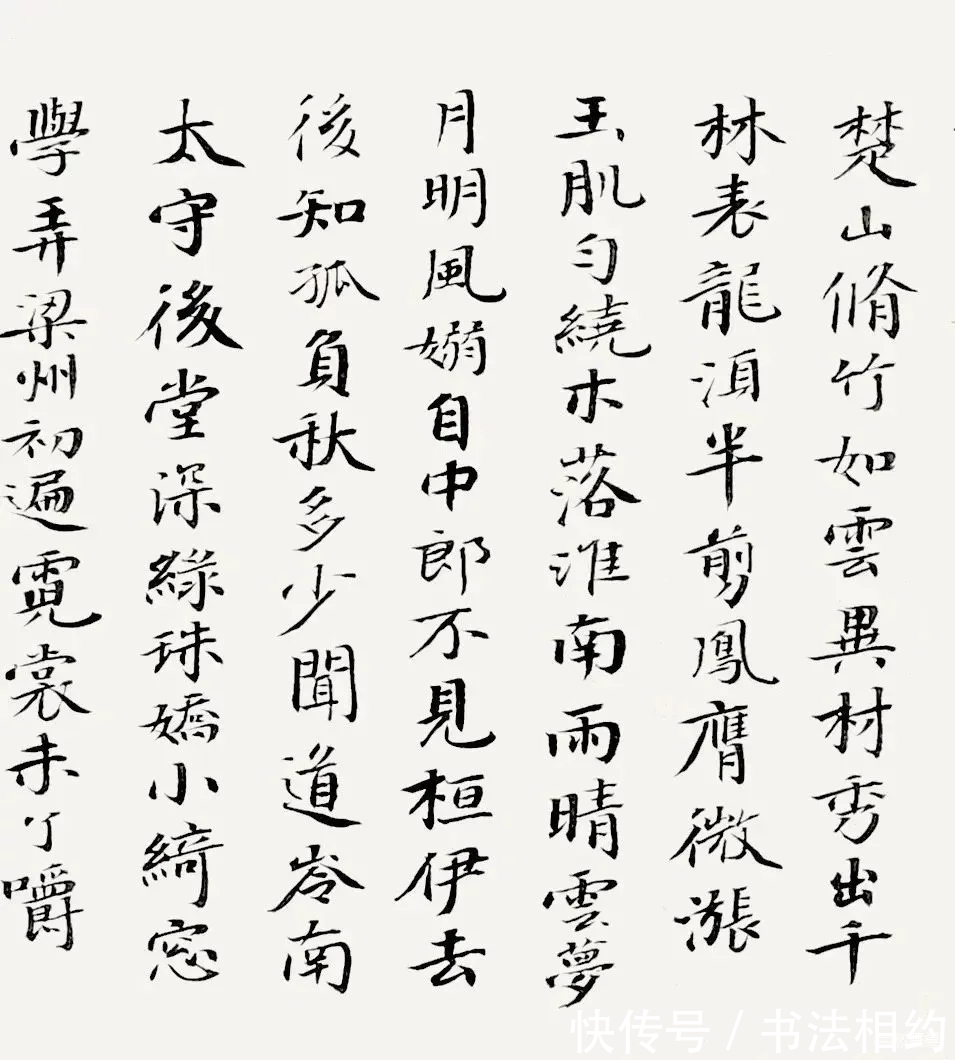 楚山脩竹如雲異材秀出千
林表龍須半剪鳳膺微漲
玉肌匀繞木落淮南雨晴雲夢
月明風嫋自中郎不見桓伊去
後知孤負秋多少聞道岺南
太守後堂深綠珠嬌小綺窓
學弄梁州初遍霓裳未了嚼
快传号 / 书法相约